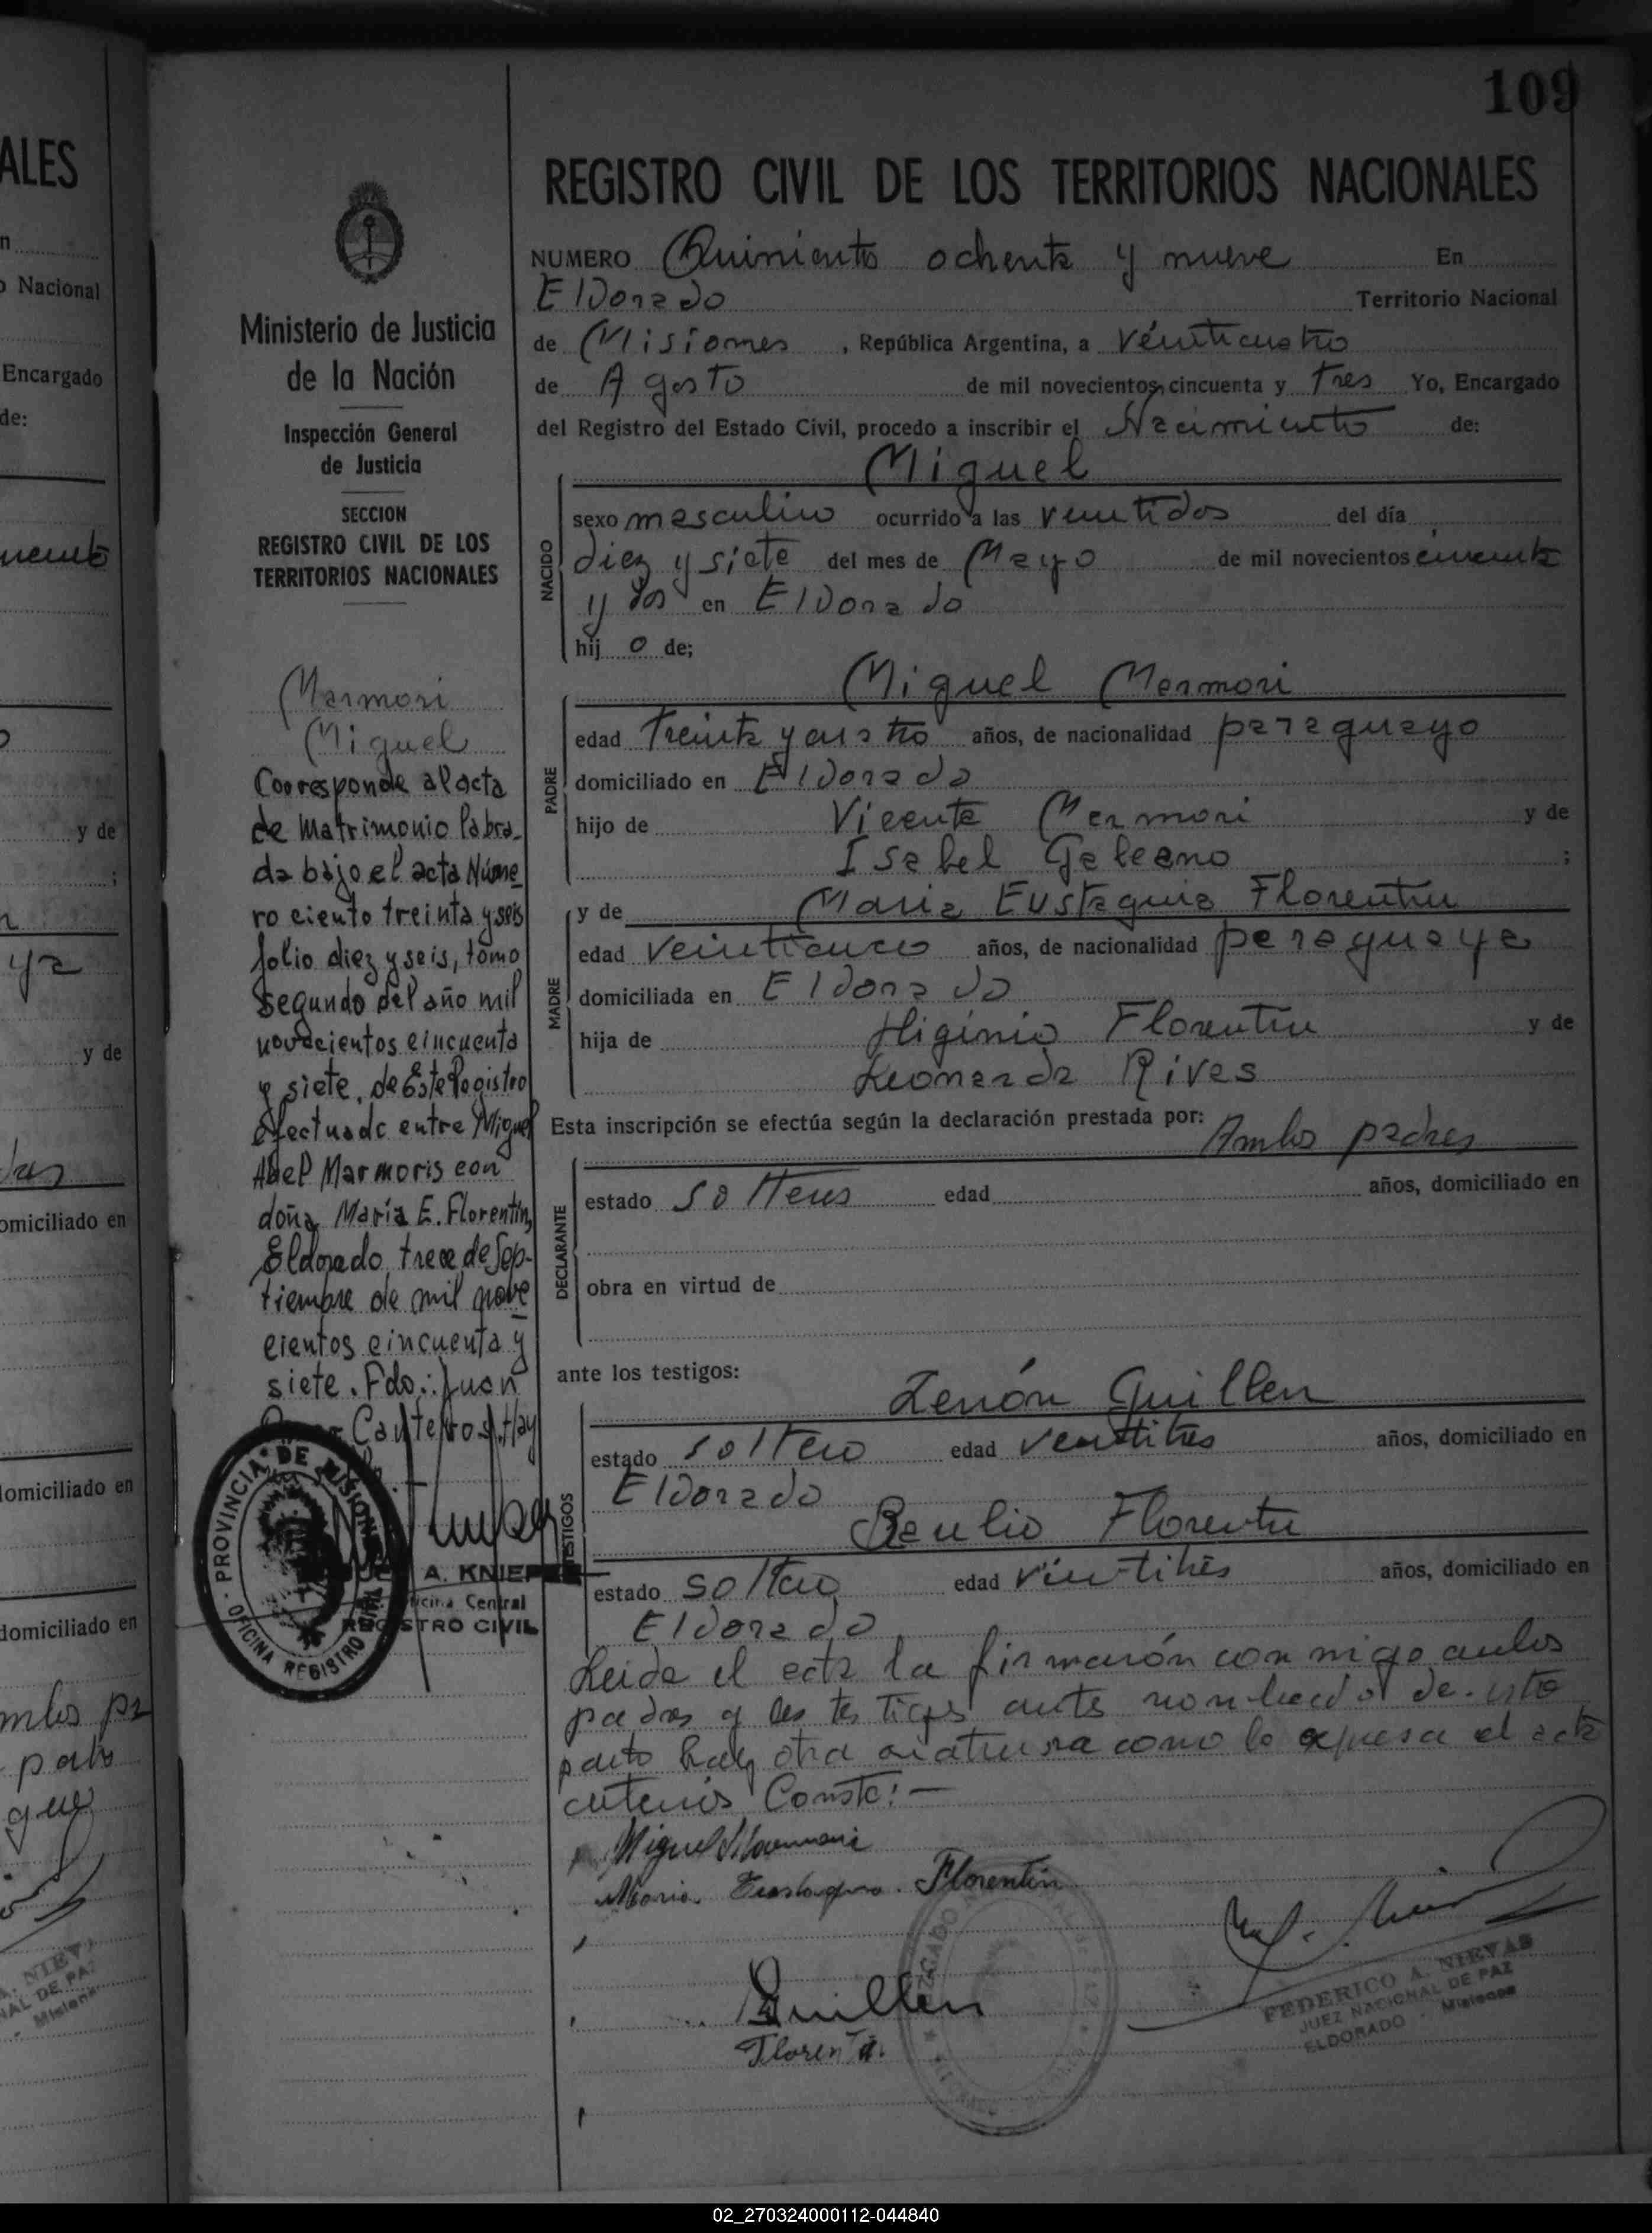 109
ALES
n
o Nacional
Encargado
de:
y de
;
ya
y de
omiciliado en
domiciliado en
domiciliado en
mbos pa
Ministerio de Justicia
de la Nación
Inspección General
de Justicia
SECCION
REGISTRO CIVIL DE LOS
TERRITORIOS NACIONALES
Marmori
Miguel
Corresponde al acta
de Matrimonio labra-
da bajo el acta Núme
ro ciento treinta y seis
folio diez y seis, tomo
segundo del año mil
novecientos cincuenta
y siete, de Este Registro
efectuado entre Miguel
Abel Marmoris con
doña María E. Florentin,
Eldorado trece de Sep-
tiembre de mil nove
cientos cincuenta y
siete. Fdo.: Juan
Canteros. Hay
PROVINCIA DE MISIONES
OFICINA REGISTRO
A. KNIE
Oficina Central
REGISTRO CIVIL
REGISTRO CIVIL DE LOS TERRITORIOS NACIONALES
NUMERO Quiniento ochenta y nueve En
ElDorado Territorio Nacional
de Misiones, República Argentina, a veinticuatro
de Agosto de mil novecientos cincuenta y tres Yo, Encargado
del Registro del Estado Civil, procedo a inscribir el Nacimiento de:
Miguel
NACIDO
sexo masculino ocurrido a las ventidos del día
diez y siete del mes de Mayo de mil novecientos cincuenta
y dos en ElDorado
hij o de;
Miguel Mermori
PADRE
edad Treinta y cuatro años, de nacionalidad paraguayo
domiciliado en ElDorado
hijo de Vicente Mermori y de
Isabel Galeano ;
MADRE
y de Maria Eustaquia Florentin
edad veinticinco años, de nacionalidad paraguaya
domiciliada en ElDorado
hija de Higinio Florentin y de
Leonarda Rives
Esta inscripción se efectúa según la declaración prestada por: Ambos padres
DECLARANTE
estado solteros edad años, domiciliado en
obra en virtud de
ante los testigos:
Zenón Guillen
TESTIGOS
estado soltero edad ventitres años, domiciliado en
ElDorado
Florentin
estado soltero edad vientitrés años, domiciliado en
ElDorado
Leida el acta la firmarón conmigo ambos
padres y los testigos ante nombrados de esto
hay otra como lo expresa el acta
Conste:—
Miguel Marmori
Maria Eustaquia Florentin
Guillen
Florentin
JUZGADO
FEDERICO A. NIEVAS
JUEZ NACIONAL DE PAZ
ELDORADO - Misiones
02_270324000112-044840